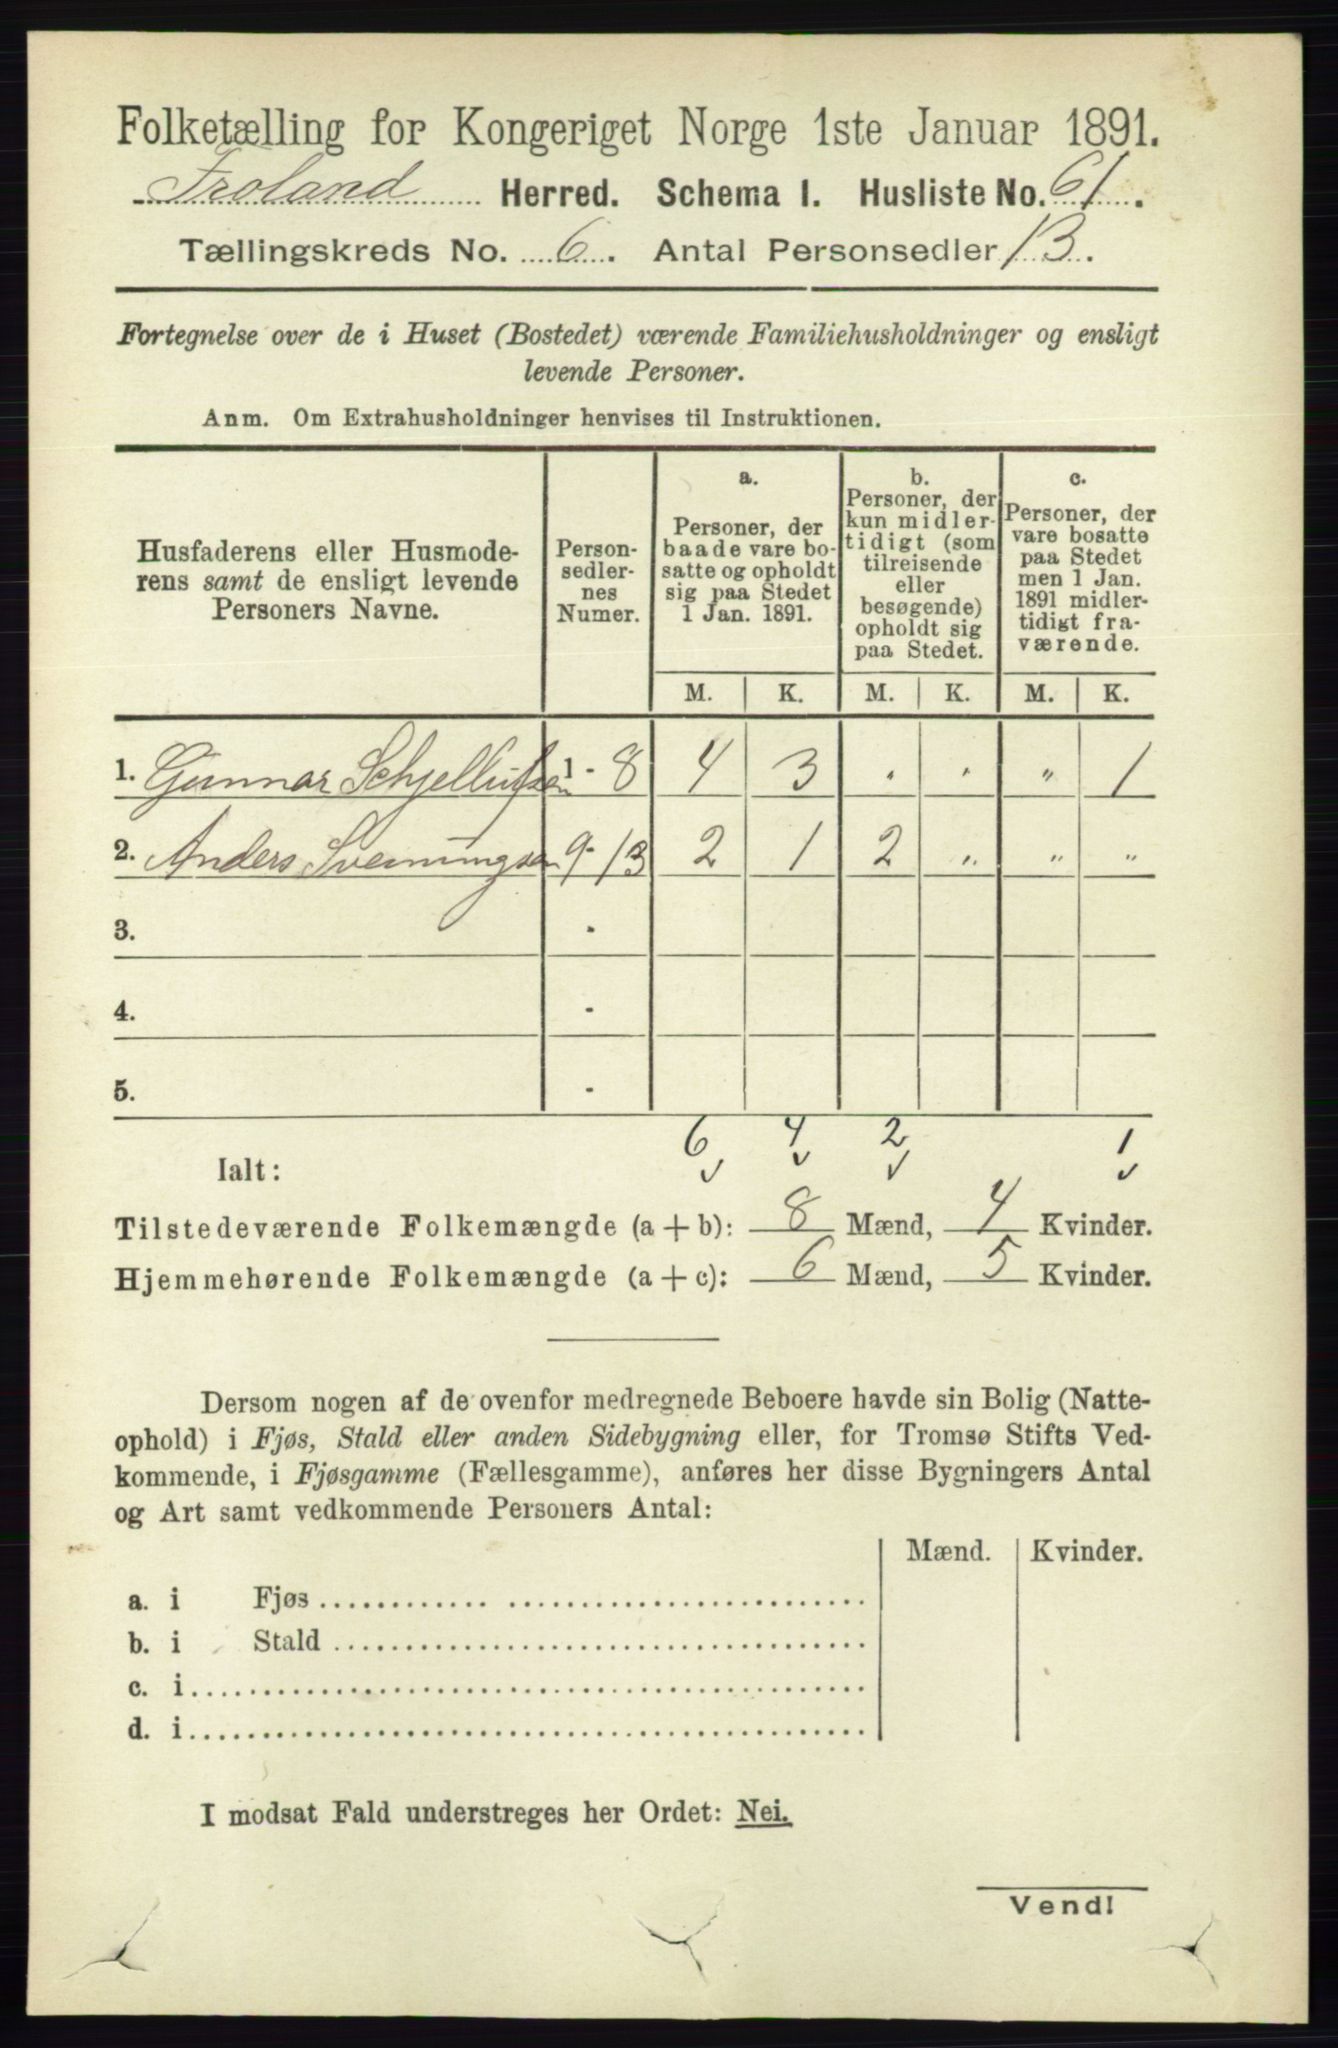 Folketælling for Kongeriget Norge 1ste Januar 1891.
Froland Herred. Schema I. Husliste No. 61.
Tællingskreds No. 6. Antal Personsedler 13.
Fortegnelse over de i Huset (Bostedet) værende Familiehusholdninger og ensligt
levende Personer.
Anm. Om Extrahusholdninger henvises til Instruktionen.
Husfaderens eller Husmode-
rens samt de ensligt levende
Personers Navne.
Person-
sedler-
nes
Numer.
a.
Personer, der
baade vare bo-
satte og opholdt
sig paa Stedet
1 Jan. 1891.
b.
Personer, der
kun midler-
tidigt (som
tilreisende
eller
besøgende)
opholdt sig
paa Stedet.
c.
Personer, der
vare bosatte
paa Stedet
men 1 Jan.
1891 midler-
tidigt fra-
værende.
M. K. M. K. M. K.
1. Gunnar Schjellufsen 1-8 4 3 " " " 1
2. Anders Sveinungsen 9-13 2 1 2 " " "
3. -
4. -
5. -
6 4 2 1
Ialt:
Tilstedeværende Folkemængde (a + b): 8 Mænd, 4 Kvinder.
Hjemmehørende Folkemængde (a + c): 6 Mænd, 5 Kvinder.
Dersom nogen af de ovenfor medregnede Beboere havde sin Bolig (Natte-
ophold) i Fjøs, Stald eller anden Sidebygning eller, for Tromsø Stifts Ved-
kommende, i Fjøsgamme (Fællesgamme), anføres her disse Bygningers Antal
og Art samt vedkommende Personers Antal:
Mænd. Kvinder.
a. i Fjøs
b. i Stald
c. i
d. i
I modsat Fald understreges her Ordet: Nei.
Vend!